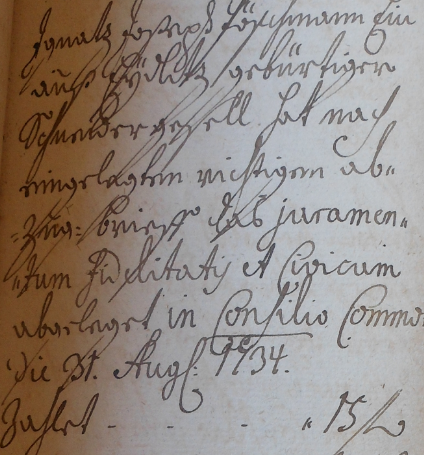 Ignatz Joseph Pöschmann Ein
auß gebürtiger
Schneidergesell hat nach
eingelegtem richtigem ab-
-zug-brieff das juramen-
-tum Fidelitatis et Civicum
abgeleget in Consilio Commo:
Die 31. Aug. 1734.
Zahlet - - - " 15 f